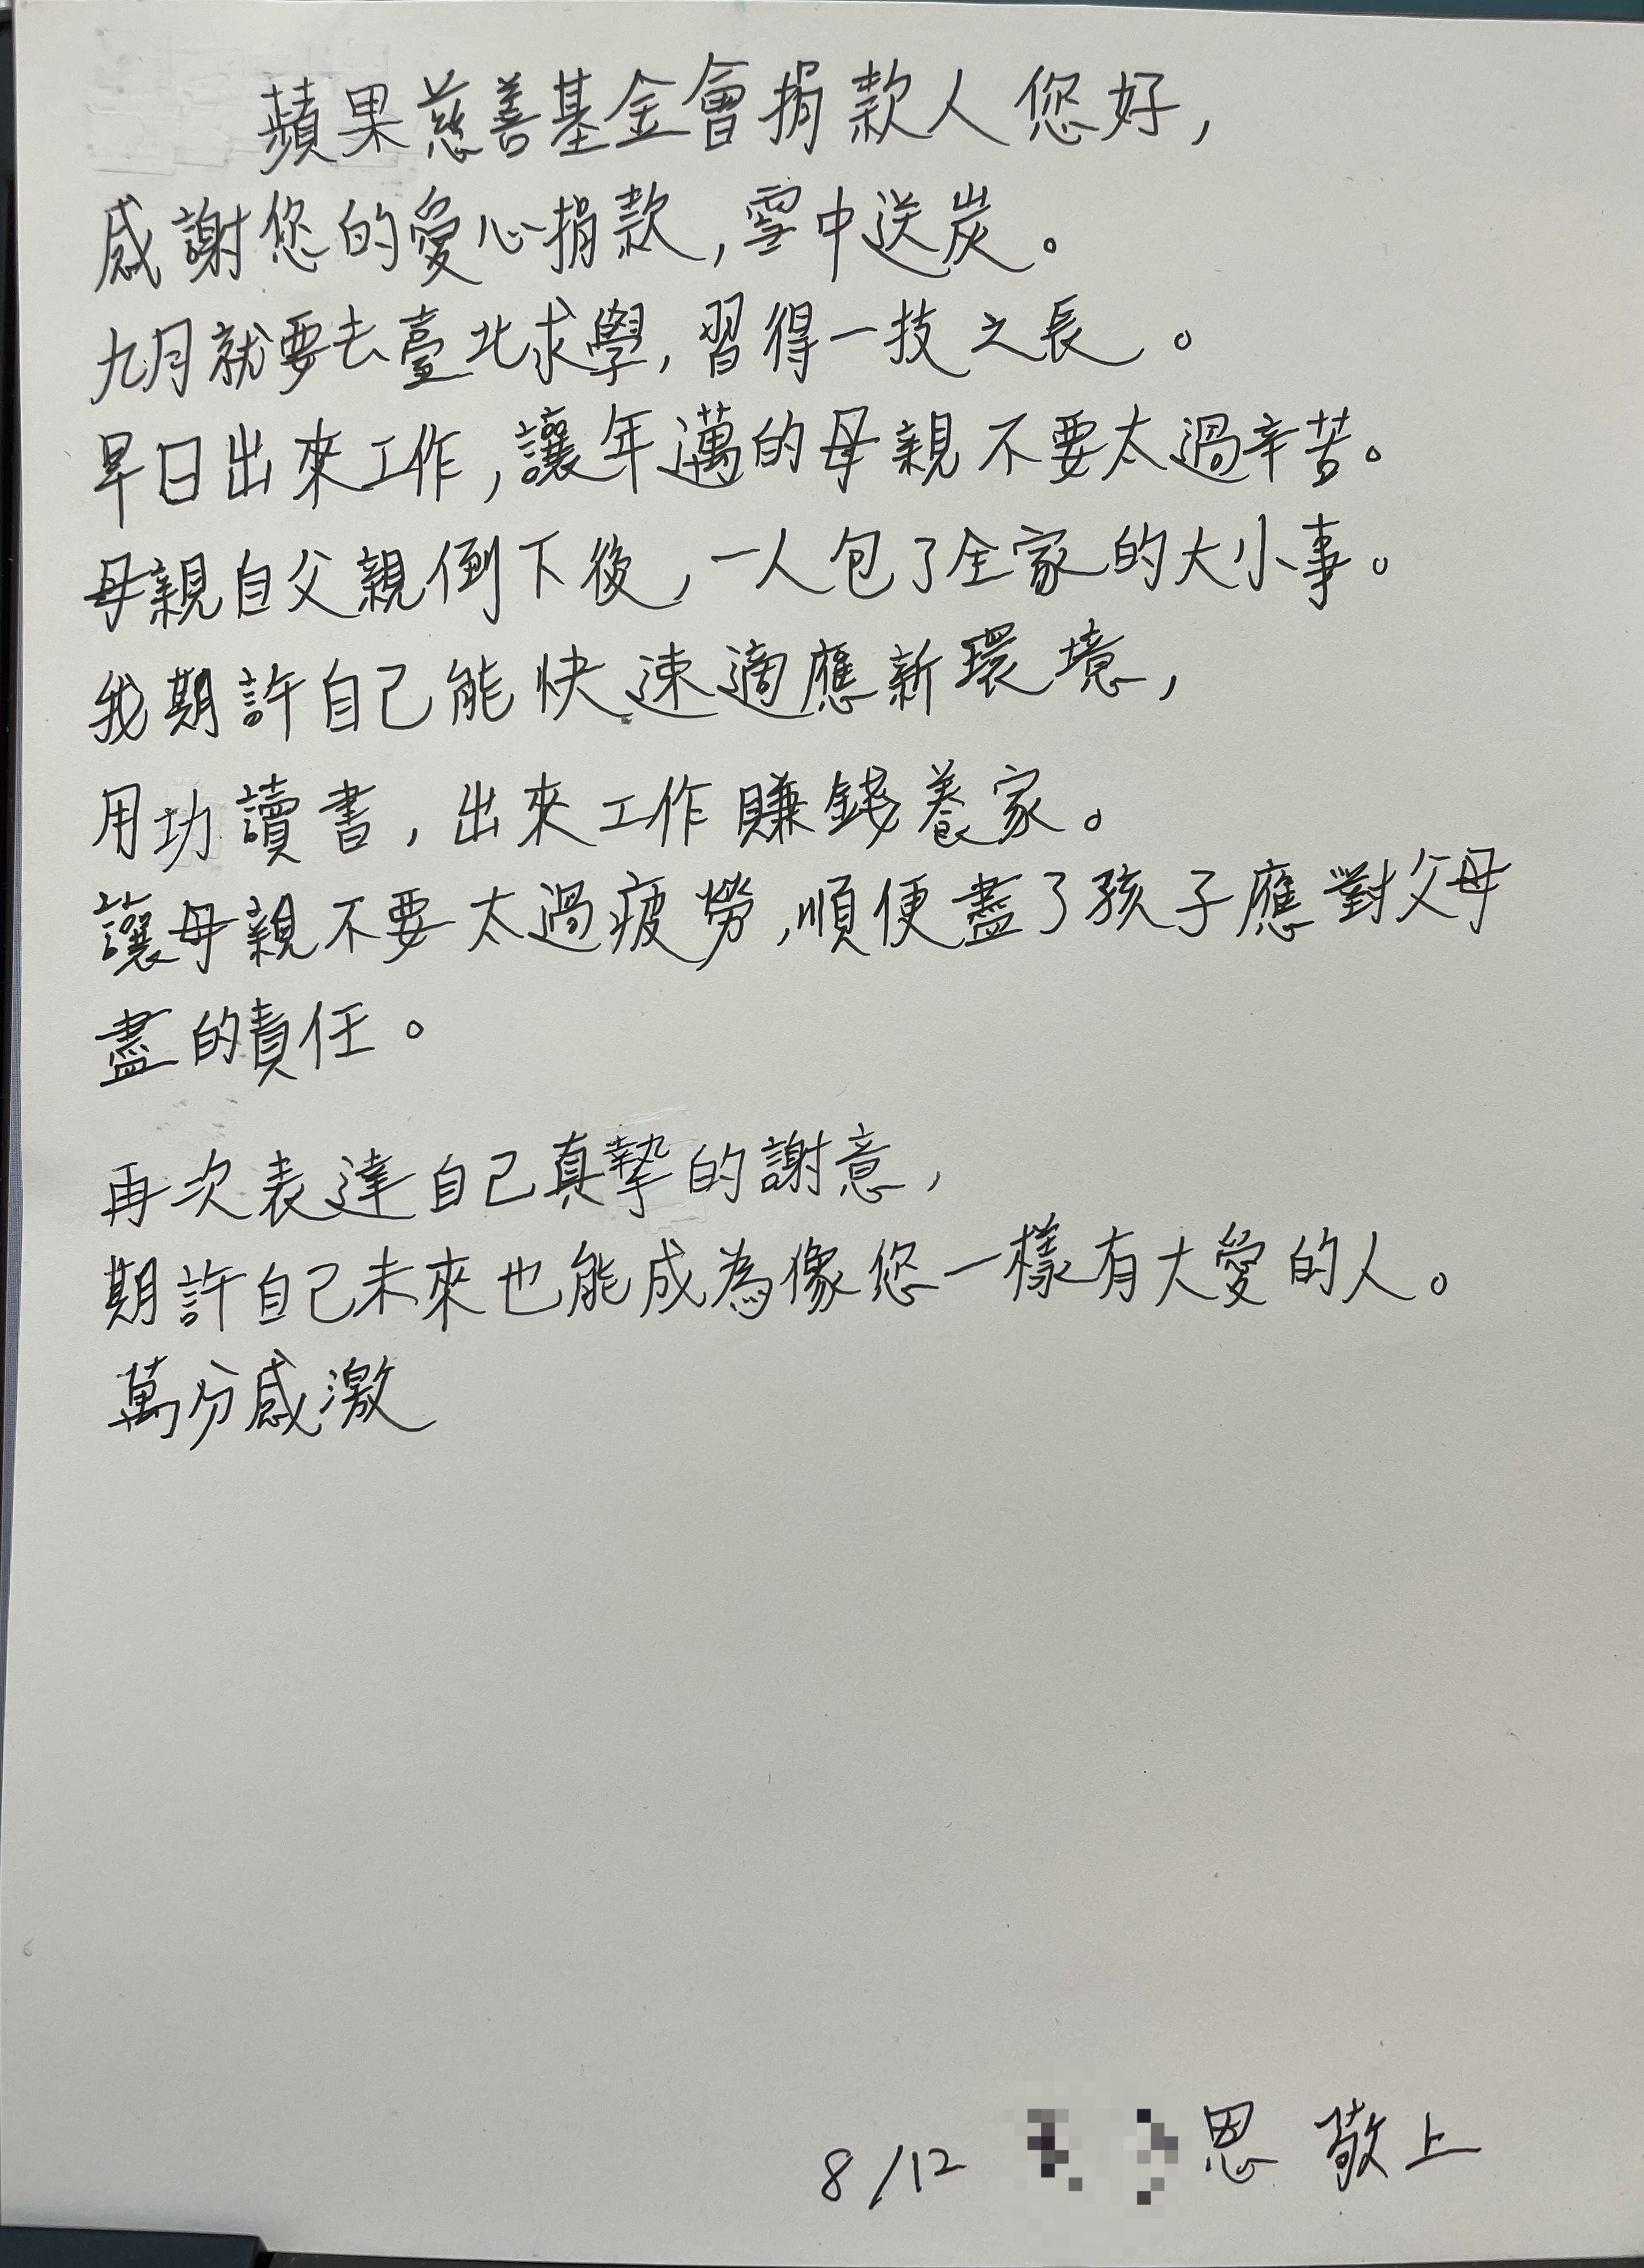 蘋果慈善基金會捐款人您好,
感謝您的愛心捐款,雪中送炭。
九月就要去臺北求學,習得一技之長。
早日出來工作,讓年邁的母親不要太過辛苦。
母親自父親倒下後,一人包了全家的大小事。
我期許自己能快速適應新環境,
用功讀書,出來工作賺錢養家。
讓母親不要太過疲勞,順便盡了孩子應對父母
盡的責任。
再次表達自己真摯的謝意,
期許自己未來也能成為像您一樣有大愛的人。
萬分感激
8/12 恩 敬上